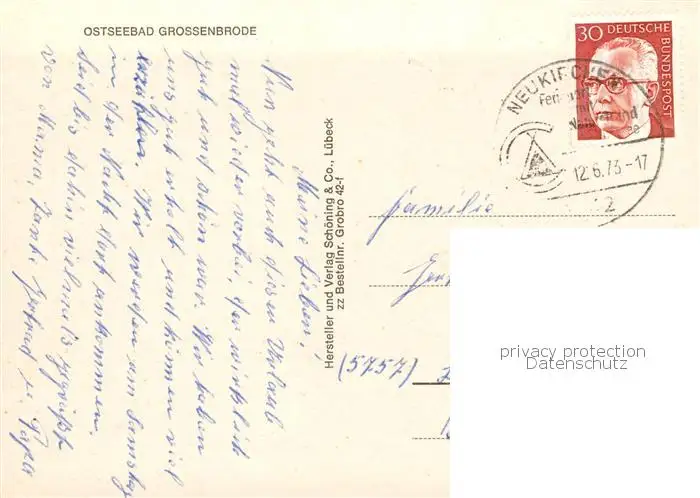 OSTSEEBAD GROSSENBRODE
Meine Lieben!
Nun geht auch dieser Urlaub
mal wieder vorbei, der wirklich
gut und schön war. Wir haben
uns gut erholt und können viel
erzählen. Wir werden am Samstag
in der Nacht dort ankommen.
Seid bis dahin vielmals gegrüßt
von Mama, Tante, Gertrud u. Papa
Hersteller und Verlag Schöning & Co., Lübeck
zz Bestellnr. Grobro 42-f
30 DEUTSCHE
BUNDESPOST
NEUKIRCHEN
12.6.73-17
2
Familie
(5757)
privacy protection
Datenschutz